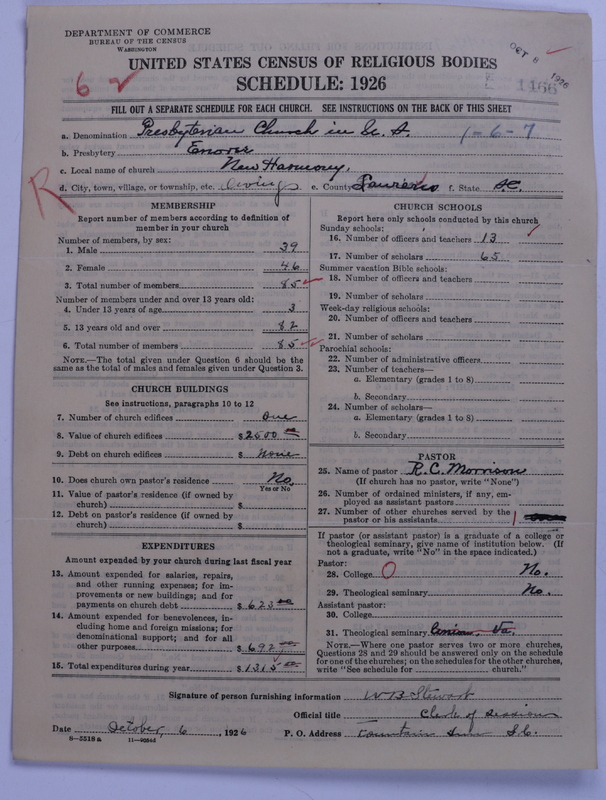 DEPARTMENT OF COMMERCE
BUREAU OF THE CENSUS
WASHINGTON
OCT 8 1926
1466
62
UNITED STATES CENSUS OF RELIGIOUS BODIES
SCHEDULE: 1926
FILL OUT A SEPARATE SCHEDULE FOR EACH CHURCH. SEE INSTRUCTIONS ON THE BACK OF THIS SHEET
a. Denomination Presbyterian Church in U. S. 1-6-7
b. Presbytery Enoree
c. Local name of church New Harmony,
d. City, town, village, or township, etc. Owings e. County Laurens f. State S.C.
R
MEMBERSHIP
Report number of members according to definition of
member in your church
Number of members, by sex:
1. Male 39
2. Female 46
3. Total number of members 85
Number of members under and over 13 years old:
4. Under 13 years of age 3
5. 13 years old and over 82
6. Total number of members 85
NOTE.—The total given under Question 6 should be the
same as the total of males and females given under Question 3.
CHURCH BUILDINGS
See instructions, paragraphs 10 to 12
7. Number of church edifices One
8. Value of church edifices $2500 00
9. Debt on church edifices $ None
10. Does church own pastor's residence No.
Yes or No
11. Value of pastor's residence (if owned by
church) $
12. Debt on pastor's residence (if owned by
church) $
EXPENDITURES
Amount expended by your church during last fiscal year
13. Amount expended for salaries, repairs,
and other running expenses; for im-
provements or new buildings; and for
payments on church debt $ 623 00
14. Amount expended for benevolences, in-
cluding home and foreign missions; for
denominational support; and for all
other purposes $ 692 00
15. Total expenditures during year $ 1315 00
CHURCH SCHOOLS
Report here only schools conducted by this church
Sunday schools:
16. Number of officers and teachers 13
17. Number of scholars 65
Summer vacation Bible schools:
18. Number of officers and teachers
19. Number of scholars
Week-day religious schools:
20. Number of officers and teachers
21. Number of scholars
Parochial schools:
22. Number of administrative officers
23. Number of teachers—
a. Elementary (grades 1 to 8)
b. Secondary
24. Number of scholars—
a. Elementary (grades 1 to 8)
b. Secondary
PASTOR
25. Name of pastor R. C. Morrison
(If church has no pastor, write "None")
26. Number of ordained ministers, if any, em-
ployed as assistant pastors
27. Number of other churches served by the
pastor or his assistants 1
If pastor (or assistant pastor) is a graduate of a college or
theological seminary, give name of institution below. (If
not a graduate, write "No" in the space indicated.)
Pastor:
28. College O No.
29. Theological seminary No.
Assistant pastor:
30. College
31. Theological seminary Union, Va.
NOTE.—Where one pastor serves two or more churches,
Questions 28 and 29 should be answered only on the schedule
for one of the churches; on the schedules for the other churches,
write "See schedule for church."
Signature of person furnishing information W B Stewart
Official title Clerk of Session
Date October, 6, 1926 P. O. Address Fountain Inn S.C.
8—5518 a 11—9056d